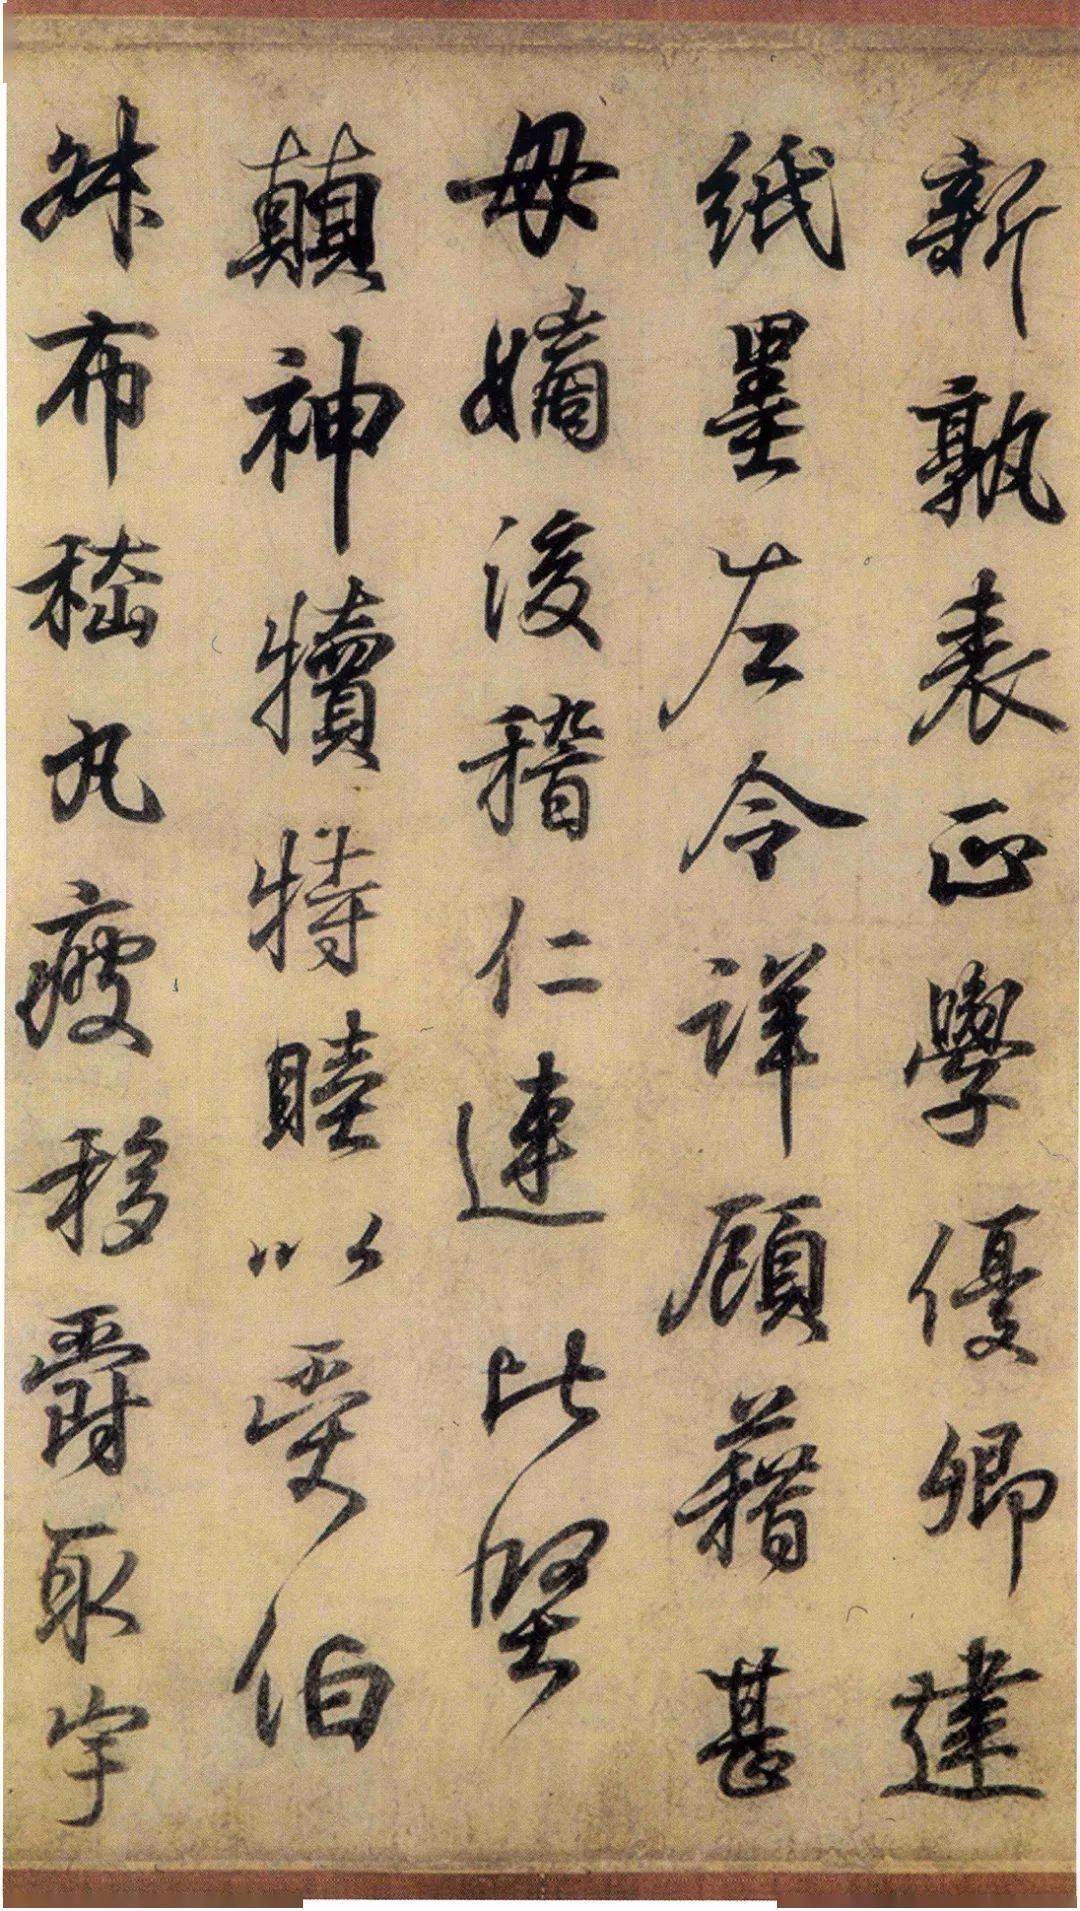 新孰表正學優卿達
紙墨左令詳顧藉甚
毋嫡後稽仁連比堅
顛神犢特睦以受伯
叔布嵇丸疲移爵取宇